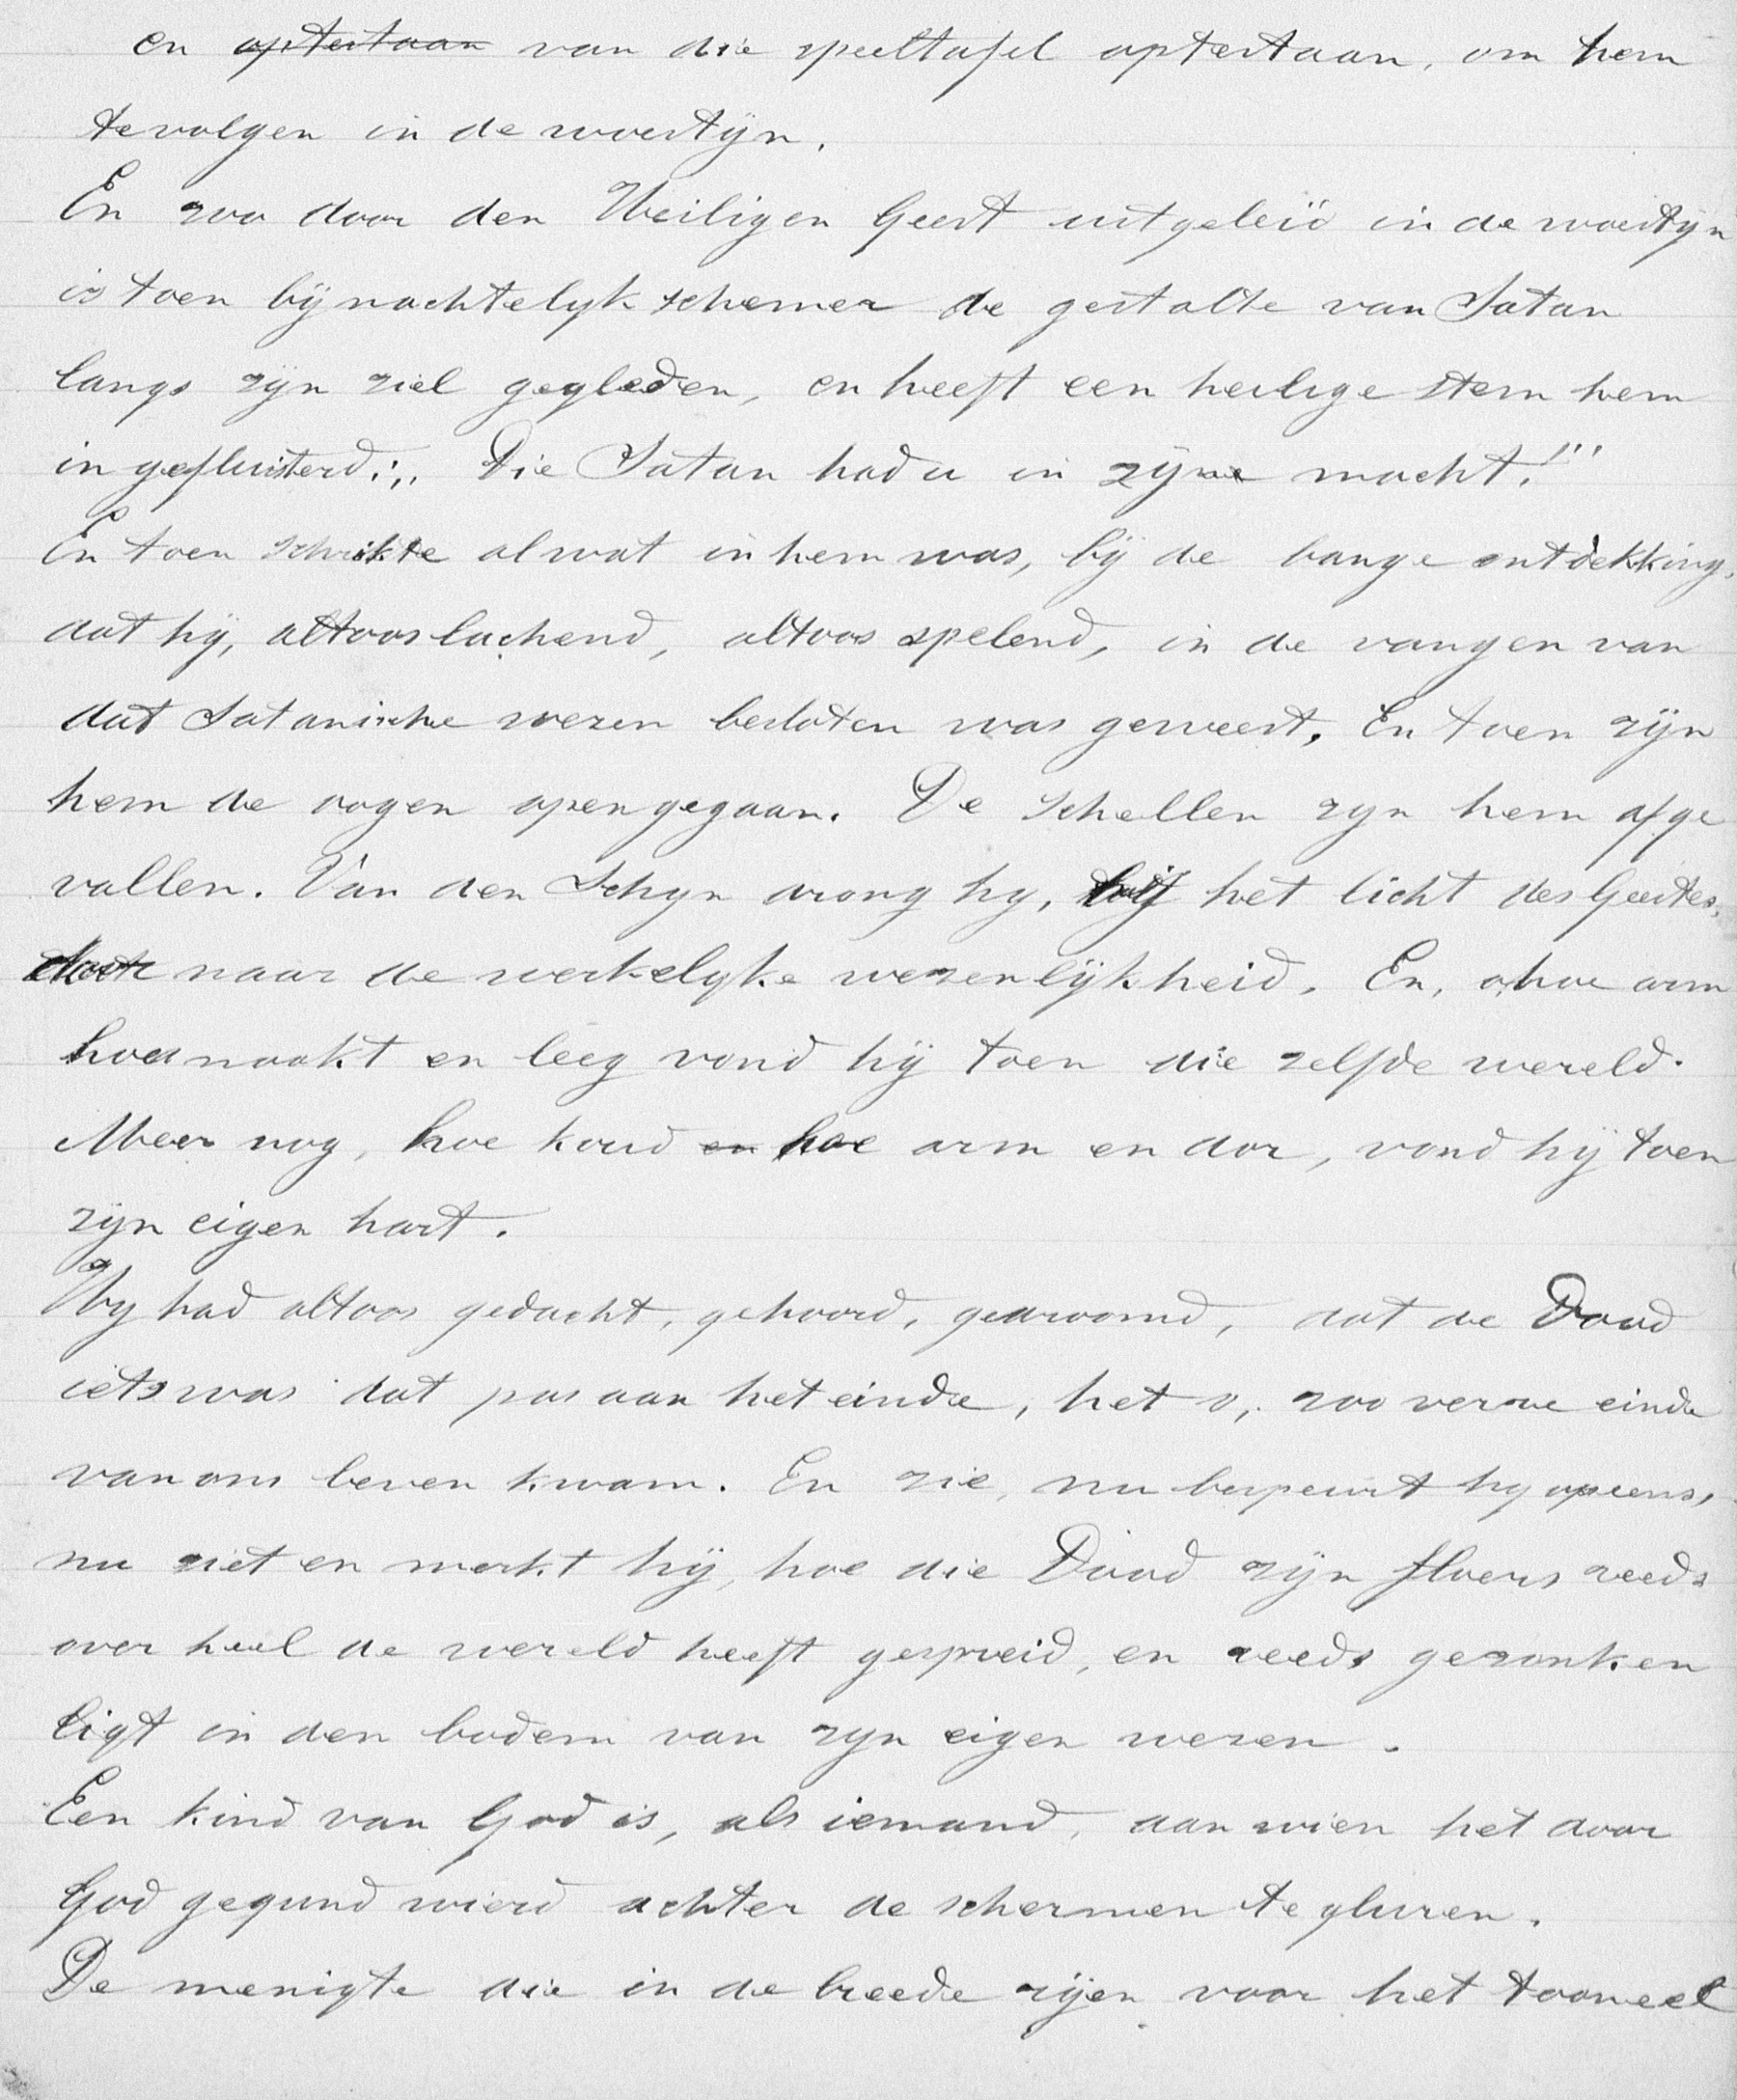 en optestaan van die speeltafel optestaan, om hem
tevolgen in de woestijn.
En zoo door den Heiligen Geest uitgeleid in de woestijn
is toen bij nachtelyk schemer de gestalte van Satan
langs zijn ziel gegleden, en heeft een heilige stem hem
in gefluisterd: „Die Satan had u in zijne macht!"
En toen schrikte al wat in hem was, bij de bange ontdekking,
dat hij, altoos lachend, altoos spelend, in de vangen van
dat Satanische wezen besloten was geweest. En toen zijn
hem de oogen opengegaan. De schellen zyn hem afge
vallen. Van den Schyn drong hy, bij het licht des Geestes,
door naar de werkelyke wezenlijkheid. En, o, hoe arm
hoe naakt en leeg vond hij toen die zelfde wereld.
Meer nog, hoe koud en hoe arm en dor, vond hij toen
zijn eigen hart.
Hy had altoos gedacht, gehoord, gedroomd, dat de Dood
iets was dat pas aan het einde, het o, zoo verre einde
van ons leven kwam. En zie, nu bespeurt hy opeens,
nu ziet en merkt hij, hoe die Dood zijn floers reeds
over heel de wereld heeft gespreid, en reeds gezonken
ligt in den bodem van zyn eigen wezen.
Een kind van God is, als iemand, aan wien het door
God gegund wierd achter de schermen te gluren.
De menigte die in de breede rijen voor het tooneel